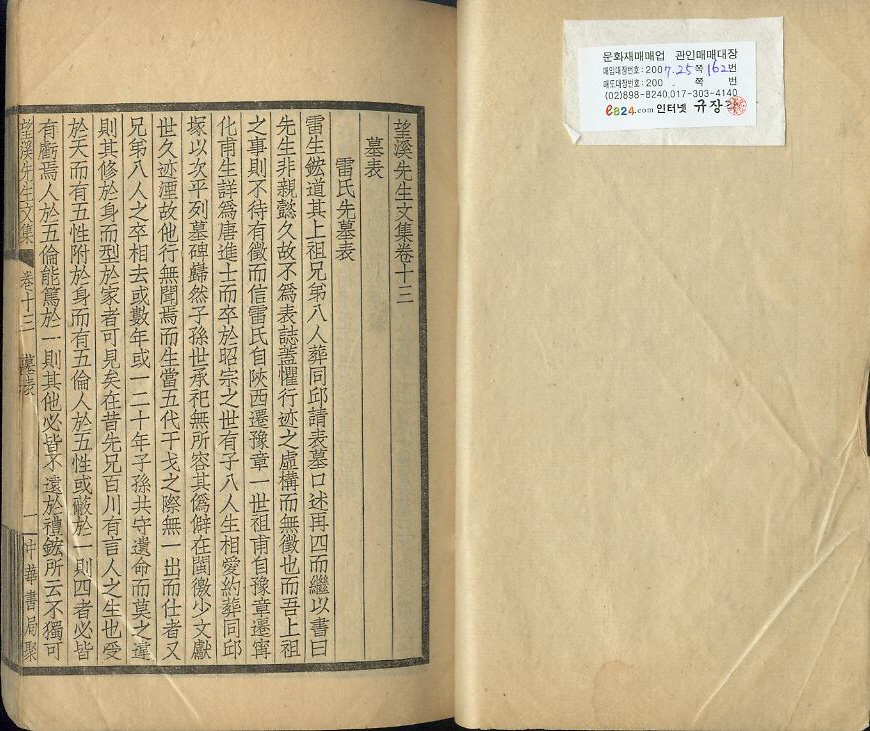 望溪先生文集卷十三
墓表
雷氏先墓表
雷生鋐道其上祖兄弟八人葬同邱請表墓口述再四而繼以書曰
先生非親懿久故不爲表誌蓋懼行迹之虛構而無徵也而吾上祖
之事則不待有徵而信雷氏自陝西遷豫章一世祖甫自豫章遷寧
化甫生詳爲唐進士而卒於昭宗之世有子八人生相愛約葬同邱
塚以次平列墓碑巋然子孫世承祀無所容其僞僻在閩徼少文獻
世久迹湮故他行無聞焉而生當五代干戈之際無一出而仕者又
兄弟八人之卒相去或數年或一二十年子孫共守遺命而莫之違
則其修於身而型於家者可見矣在昔先兄百川有言人之生也受
於天而有五性附於身而有五倫人於五性或蔽於一則四者必皆
有虧焉人於五倫能篤於一則其他必皆不遠於禮鋐所云不獨可
望溪先生文集 卷十三 墓表 一 中華書局聚
문화재매매업 관인매매대장
매입대장번호 : 2007.25쪽 162번
매도대장번호 : 200 쪽 번
(02)898-8240,017-303-4140
ea24.com 인터넷 규장각